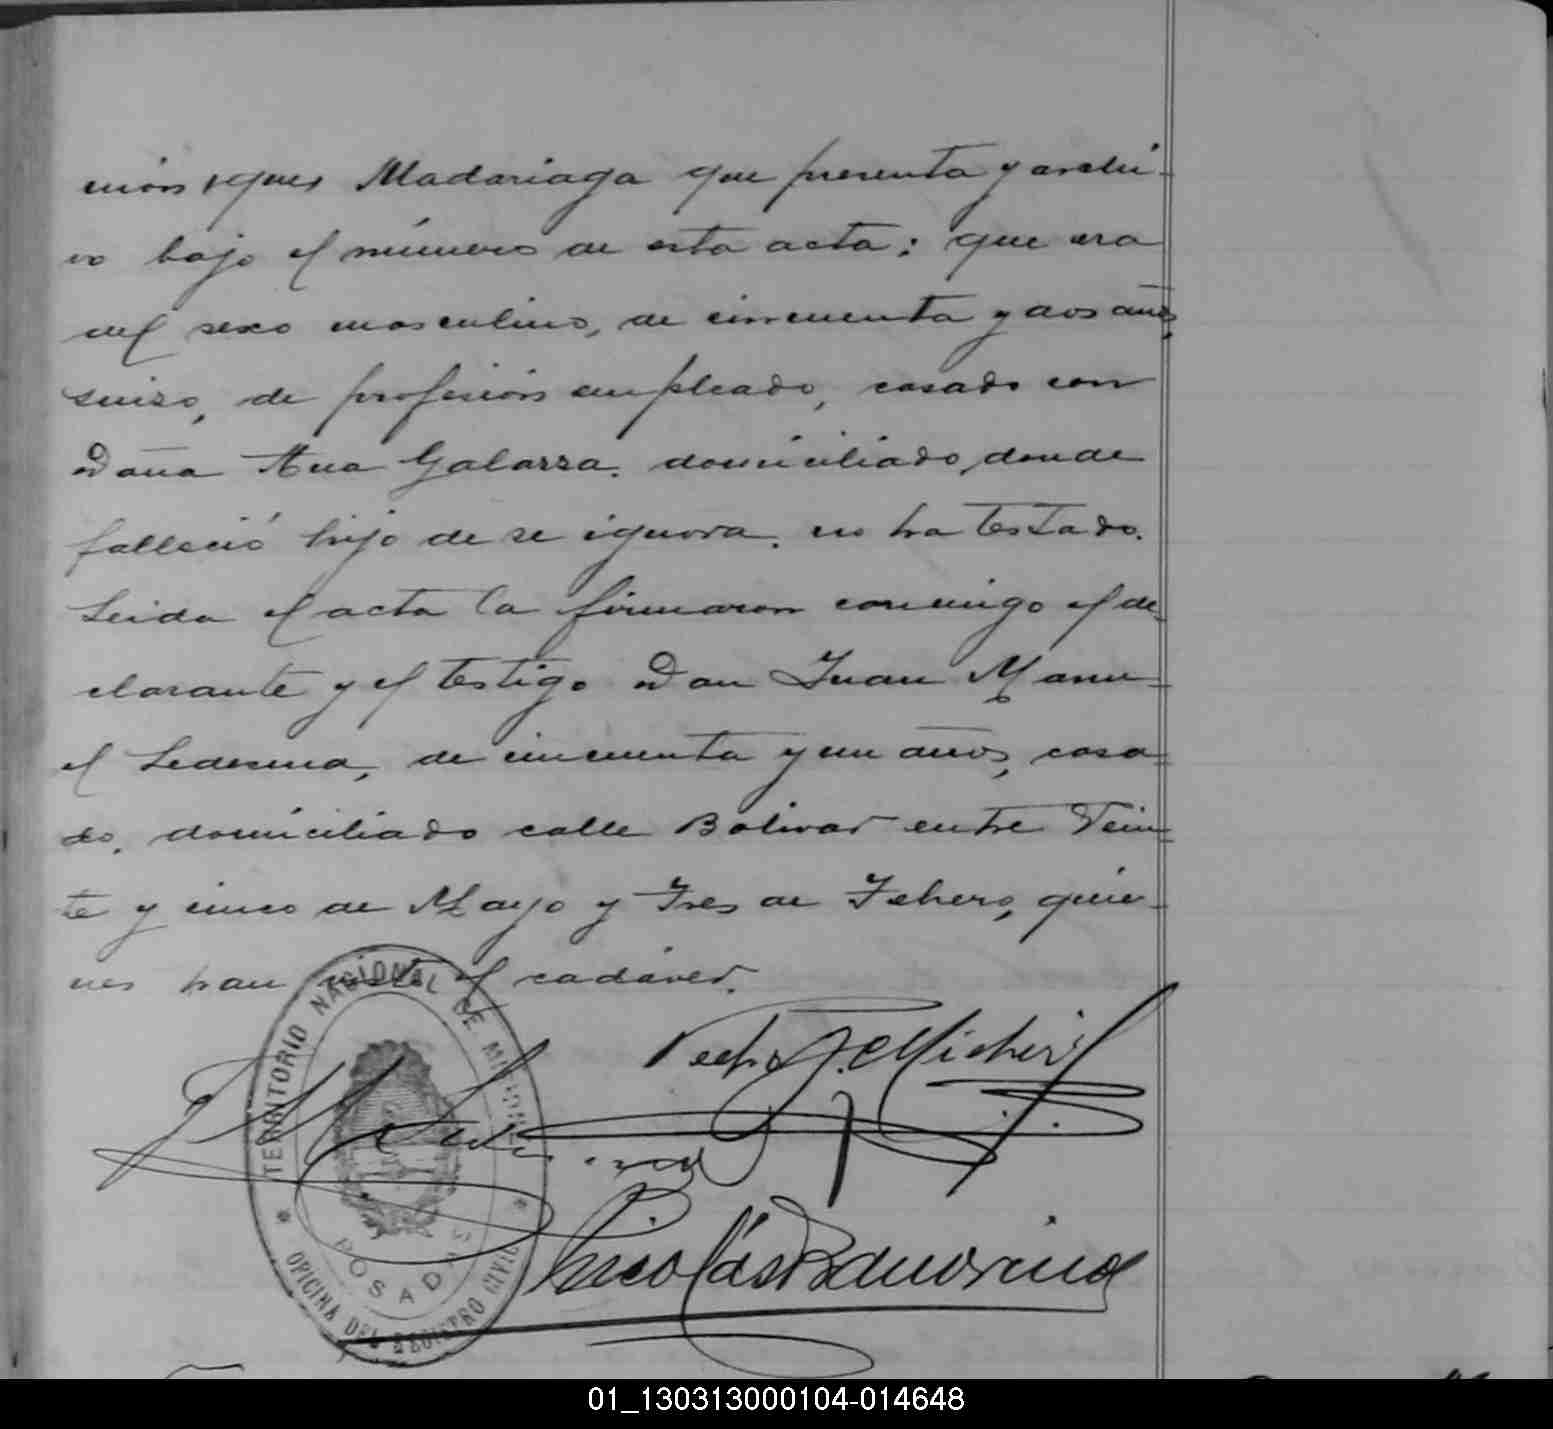 Madariaga que presenta y archi-
vo bajo el número de esta acta; que era
del sexo masculino, de cincuenta y dos años,
suizo, de profesión empleado, casado con
Doña Ana Galarza, domiciliado donde
falleció hijo de se ignora. no ha testado.
Leida el acta la firmaron conmigo el de-
clarante y el testigo Don Juan Manu-
el Ledesma, de cincuenta y un años, casa-
do, domiciliado calle Bolivar entre Vein-
te y cinco de Mayo y Tres de Febrero, quie-
nes han visto el cadáver.
TERRITORIO NACIONAL DE MISIONES
POSADAS
OFICINA DEL REGISTRO CIVIL
Nicolás
01_130313000104-014648